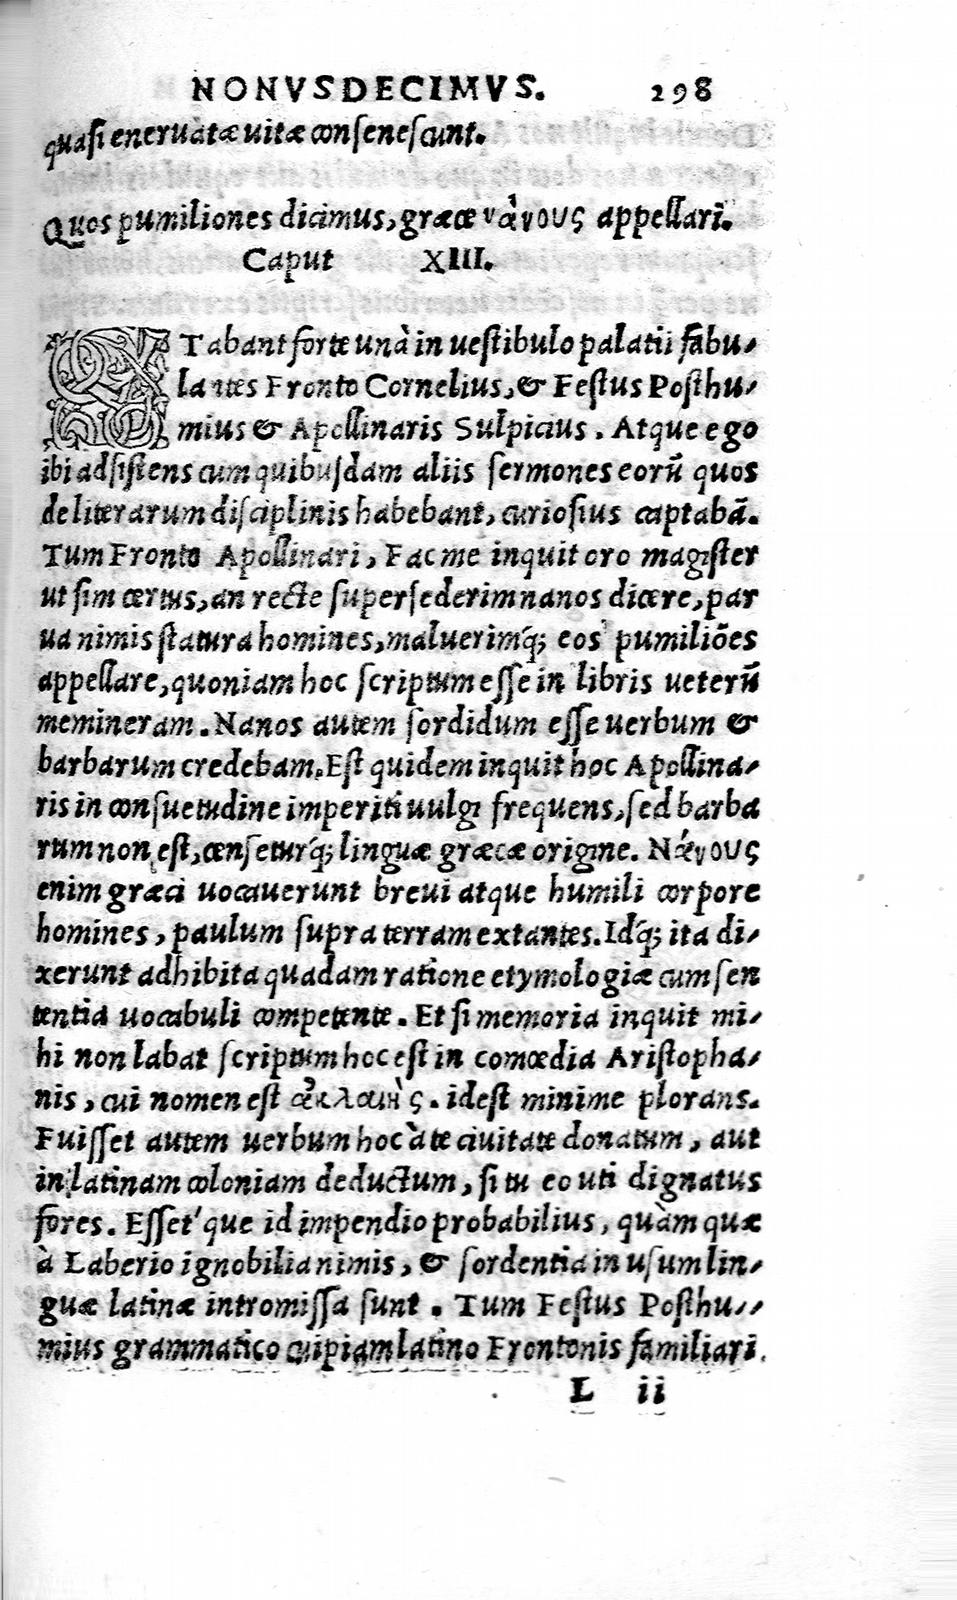 NONVSDECIMVS. 298
quasi eneruatæ uitæ consenescunt.
Quos pumiliones dicimus, græce νάνους appellari.
Caput XIII.
STabant forte unà in uestibulo palatii fabu-
lantes Fronto Cornelius, & Festus Posthu-
mius & Apollinaris Sulpicius. Atque ego
ibi adsistens cum quibusdam aliis sermones eorū quos
de literarum disciplinis habebant, curiosius captabā.
Tum Fronto Apollinari, Fac me inquit oro magister
ut sim certus, an recte supersederim nanos dicere, par
ua nimis statura homines, maluerimq́; eos pumiliōes
appellare, quoniam hoc scriptum esse in libris ueterū
memineram. Nanos autem sordidum esse uerbum &
barbarum credebam. Est quidem inquit hoc Apollina-
ris in consuetudine imperiti uulgi frequens, sed barba
rum non est, censeturq́; linguæ græcæ origine. Νάνους
enim græci uocauerunt breui atque humili corpore
homines, paulum supra terram extantes. Idq́; ita di-
xerunt adhibita quadam ratione etymologiæ cum sen
tentia uocabuli competente. Et si memoria inquit mi-
hi non labat scriptum hoc est in comœdia Aristopha-
nis, cui nomen est ἀκλαὴς. idest minime plorans.
Fuisset autem uerbum hoc à te ciuitate donatum, aut
in latinam coloniam deductum, si tu eo uti dignatus
fores. Esset'que id impendio probabilius, quàm quæ
à Laberio ignobilia nimis, & sordentia in usum lin-
guæ latinæ intromissa sunt. Tum Festus Posthu-
mius grammatico cuipiam latino Frontonis familiari.
L ii